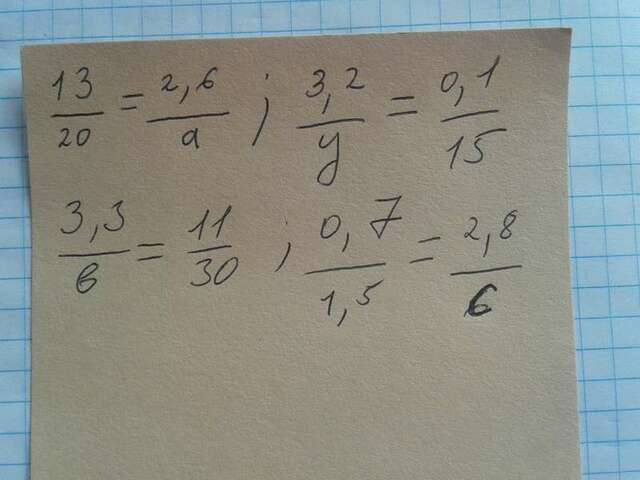 13/20 = 2,6/a ; 3,2/y = 0,1/15
3,3/в = 11/30 ; 0,7/1,5 = 2,8/6